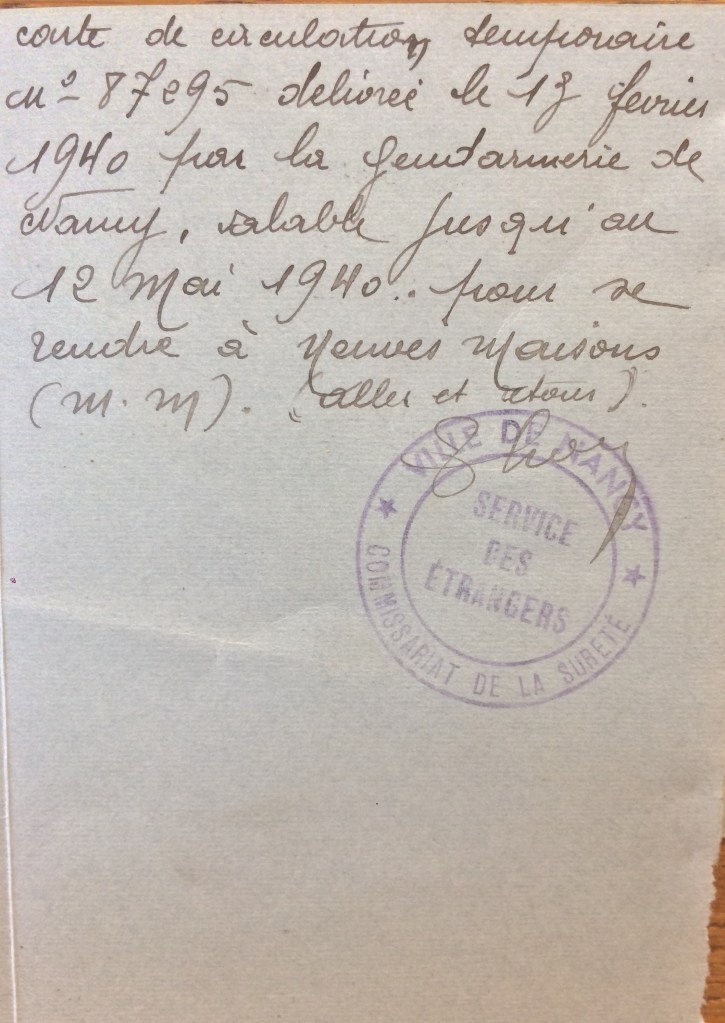 carte de circulation temporaire
No 87295 délivrée le 13 fevrier
1940 par la gendarmerie de
Nancy, valable jusqu'au
12 Mai 1940.. pour se
rendre à Neuves Maisons
(M. M). (aller et retour).
VILLE DE NANCY
SERVICE
DES
ÉTRANGERS
COMMISSARIAT DE LA SURETÉ